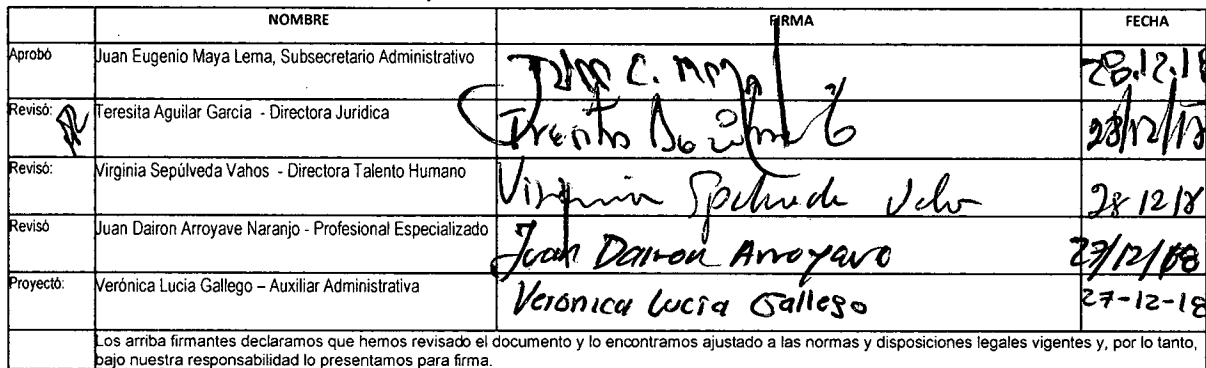 NOMBRE FIRMA FECHA
Aprobó Juan Eugenio Maya Lema, Subsecretario Administrativo 28.12.18
Revisó: Teresita Aguilar García - Directora Jurídica 28/12/18
Revisó: Virginia Sepúlveda Vahos - Directora Talento Humano Virginia Sepulveda Vahos 28 12 18
Revisó Juan Dairon Arroyave Naranjo - Profesional Especializado Juan Dairon Arroyave 27/12/18
Proyectó: Verónica Lucia Gallego – Auxiliar Administrativa Verónica Lucía Gallego 27-12-18
Los arriba firmantes declaramos que hemos revisado el documento y lo encontramos ajustado a las normas y disposiciones legales vigentes y, por lo tanto,
bajo nuestra responsabilidad lo presentamos para firma.